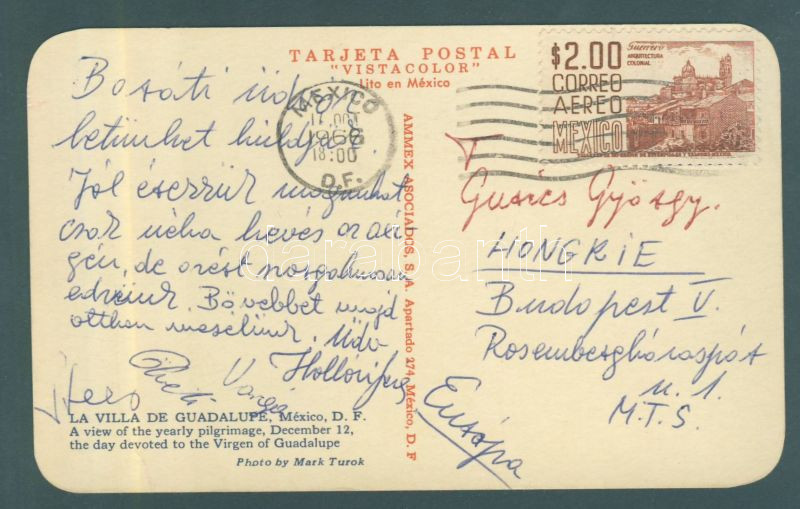 TARJETA POSTAL
"VISTACOLOR"
Lito en México
Baráti üdvöz
betünket küldjük
Jól érezzük magunkat
csak néha kevés oxi
gén, de azért szorgalmasan
edzünk. Bővebbet majd
otthon mesélünk. Üdv
Varga
LA VILLA DE GUADALUPE, México, D. F.
A view of the yearly pilgrimage, December 12,
the day devoted to the Virgen of Guadalupe
Photo by Mark Turok
AMMEX ASOCIADOS, S. A. Apartado 274, México, D. F
MEXICO
17 OCT
18:00
D.F.
$2.00
CORREO
AEREO
MEXICO
Guerrero
ARQUITECTURA
COLONIAL
György.
HONGRIE
Budapest V.
u. 1.
M.T.S.
Európa
darabanth